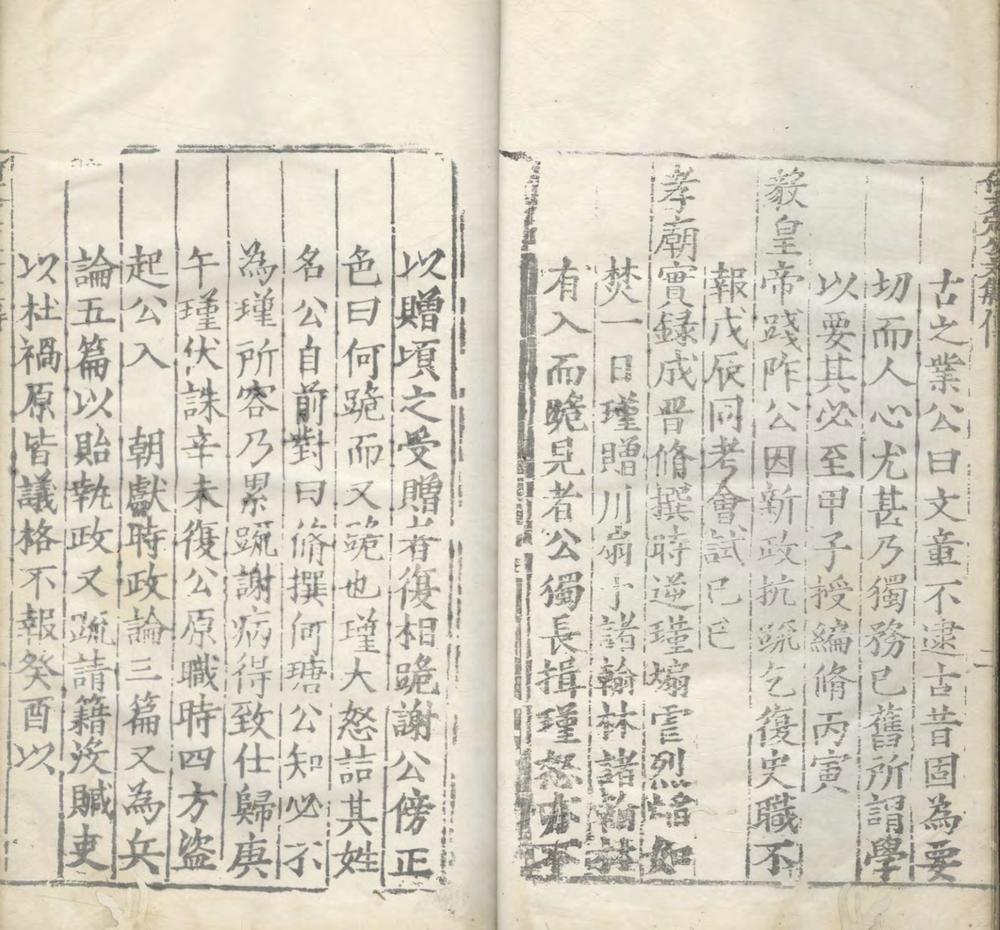 古之業公曰文章不逮古昔固為要
切而人心尤甚乃獨務已舊所謂學
以要其必至甲子授編脩丙寅
毅皇帝踐阼公因新政抗䟽乞復史職不
報戊辰同考會試已巳
孝廟實録成晋脩撰時逆瑾煽虐烈熖如
焚一日瑾贈川扇于諸翰林諸翰林
有入而跪見者公獨長揖瑾怒亦不
以贈頃之受贈者復相跪謝公傍正
色曰何跪而又跪也瑾大怒詰其姓
名公自前對曰脩撰何瑭公知必不
為瑾所容乃累䟽謝病得致仕歸庚
午瑾伏誅辛未復公原職時四方盜
起公入　朝獻時政論三篇又為兵
論五篇以貽執政又疏請籍沒贓吏
以杜禍原皆議格不報癸酉以